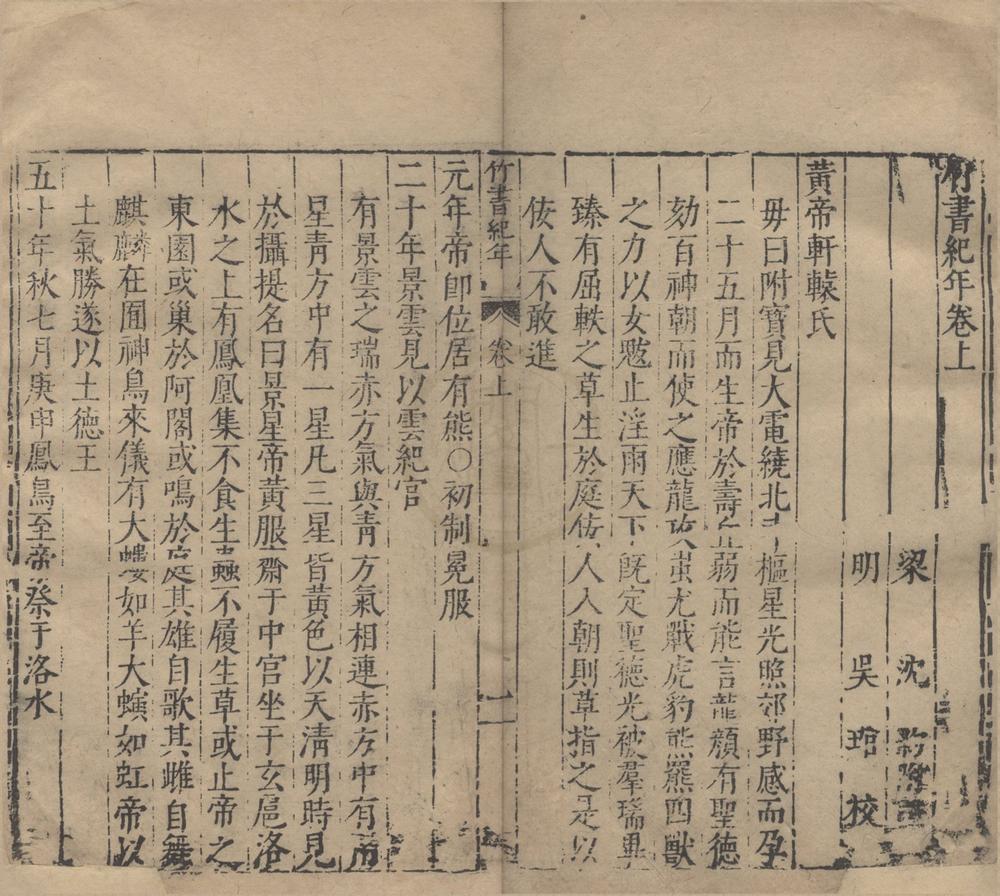 竹書紀年卷上
梁 沈
明 吳琯 校
黃帝軒轅氏
毋曰附寶見大電繞北斗樞星光照郊野感而孕
二十五月而生帝於壽丘弱而能言龍顏有聖德
劾百神朝而使之應龍攻蚩尤戰虎豹熊羆四獸
之力以女魃止淫雨天下既定聖德光被羣瑞畢
臻有屈軼之草生於庭佞人入朝則草指之是以
佞人不敢進
竹書紀年 卷上 一
元年帝即位居有熊○初制冕服
二十年景雲見以雲紀官
有景雲之瑞赤方氣與青方氣相連赤方中有兩
星青方中有一星凡三星皆黃色以天清明時見
於攝提名曰景星帝黃服齋于中宮坐于玄扈洛
水之上有鳳凰集不食生蟲不履生草或止帝之
東園或巢於阿閣或鳴於庭其雄自歌其雌自舞
麒麟在囿神鳥來儀有大螻如羊大螾如虹帝以
土氣勝遂以土德王
五十年秋七月庚申鳳鳥至帝祭于洛水